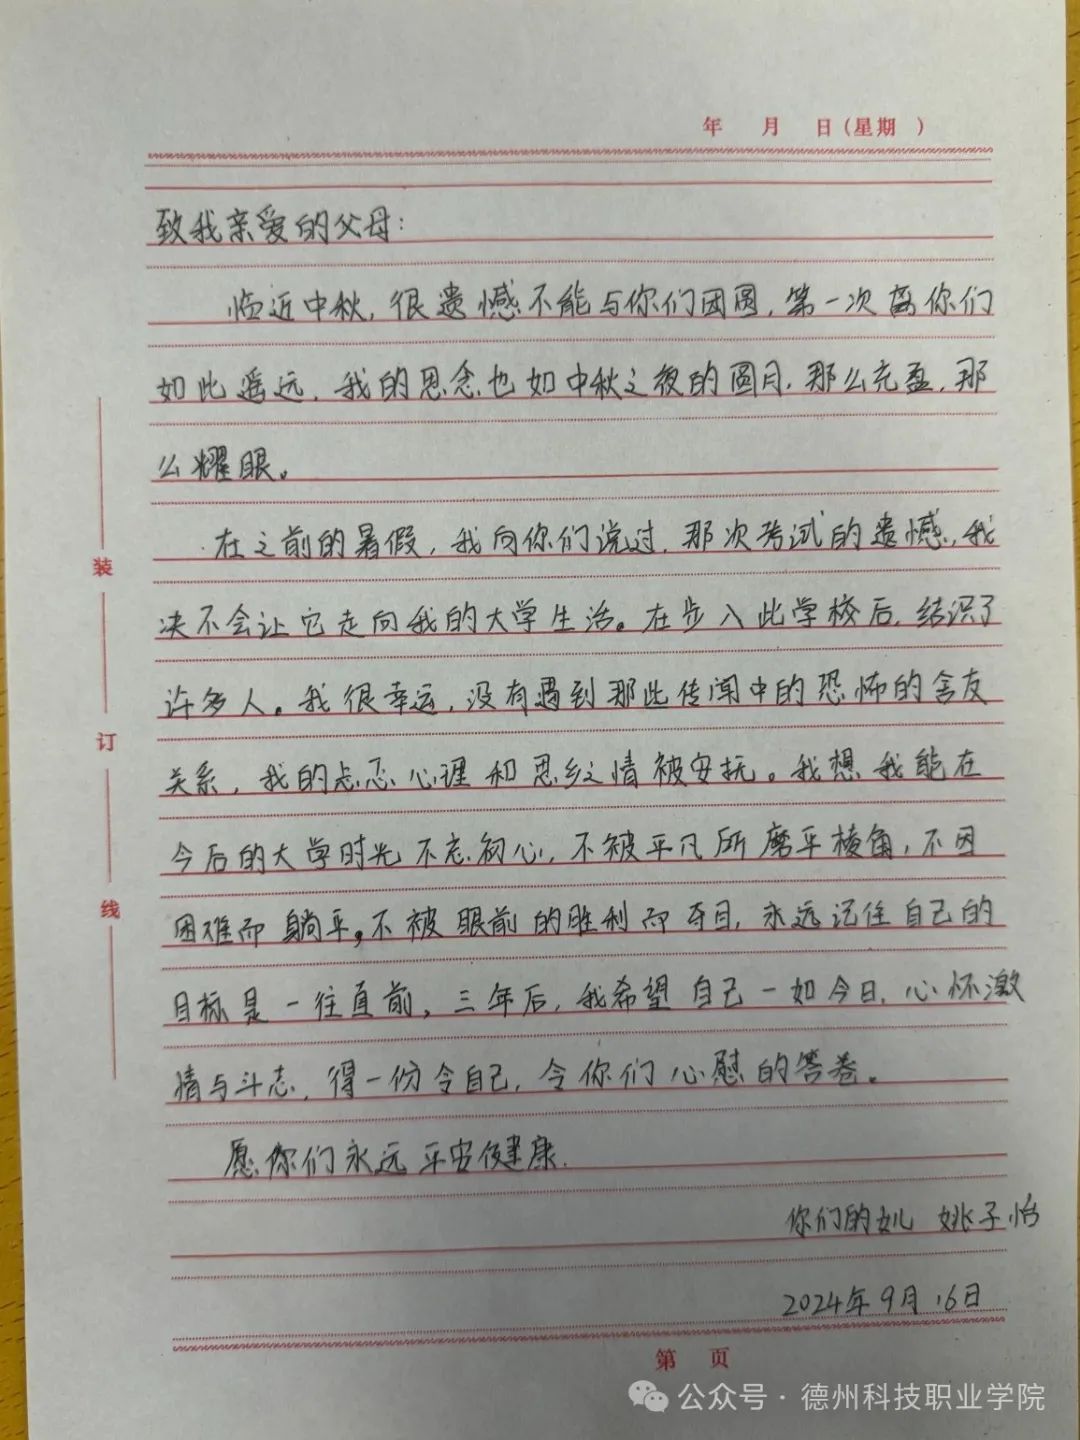 年 月 日(星期 )
致我亲爱的父母:
临近中秋,很遗憾不能与你们团圆,第一次离你们
如此遥远,我的思念也如中秋之夜的圆月,那么充盈,那
么耀眼。
在之前的暑假,我向你们说过,那次考试的遗憾,我
决不会让它走向我的大学生活。在步入此学校后,结识了
许多人。我很幸运,没有遇到那些传闻中的恐怖的舍友
关系,我的忐忑心理和思乡之情被安抚。我想我能在
今后的大学时光不忘初心,不被平凡所磨平棱角,不因
困难而躺平,不被眼前的胜利而夺目,永远记住自己的
目标是一往直前。三年后,我希望自己一如今日,心怀激
情与斗志,得一份令自己,令你们心慰的答卷。
愿你们永远平安健康.
你们的女儿 姚子怡
2024年9月16日
装
订
线
第 页
公众号·德州科技职业学院